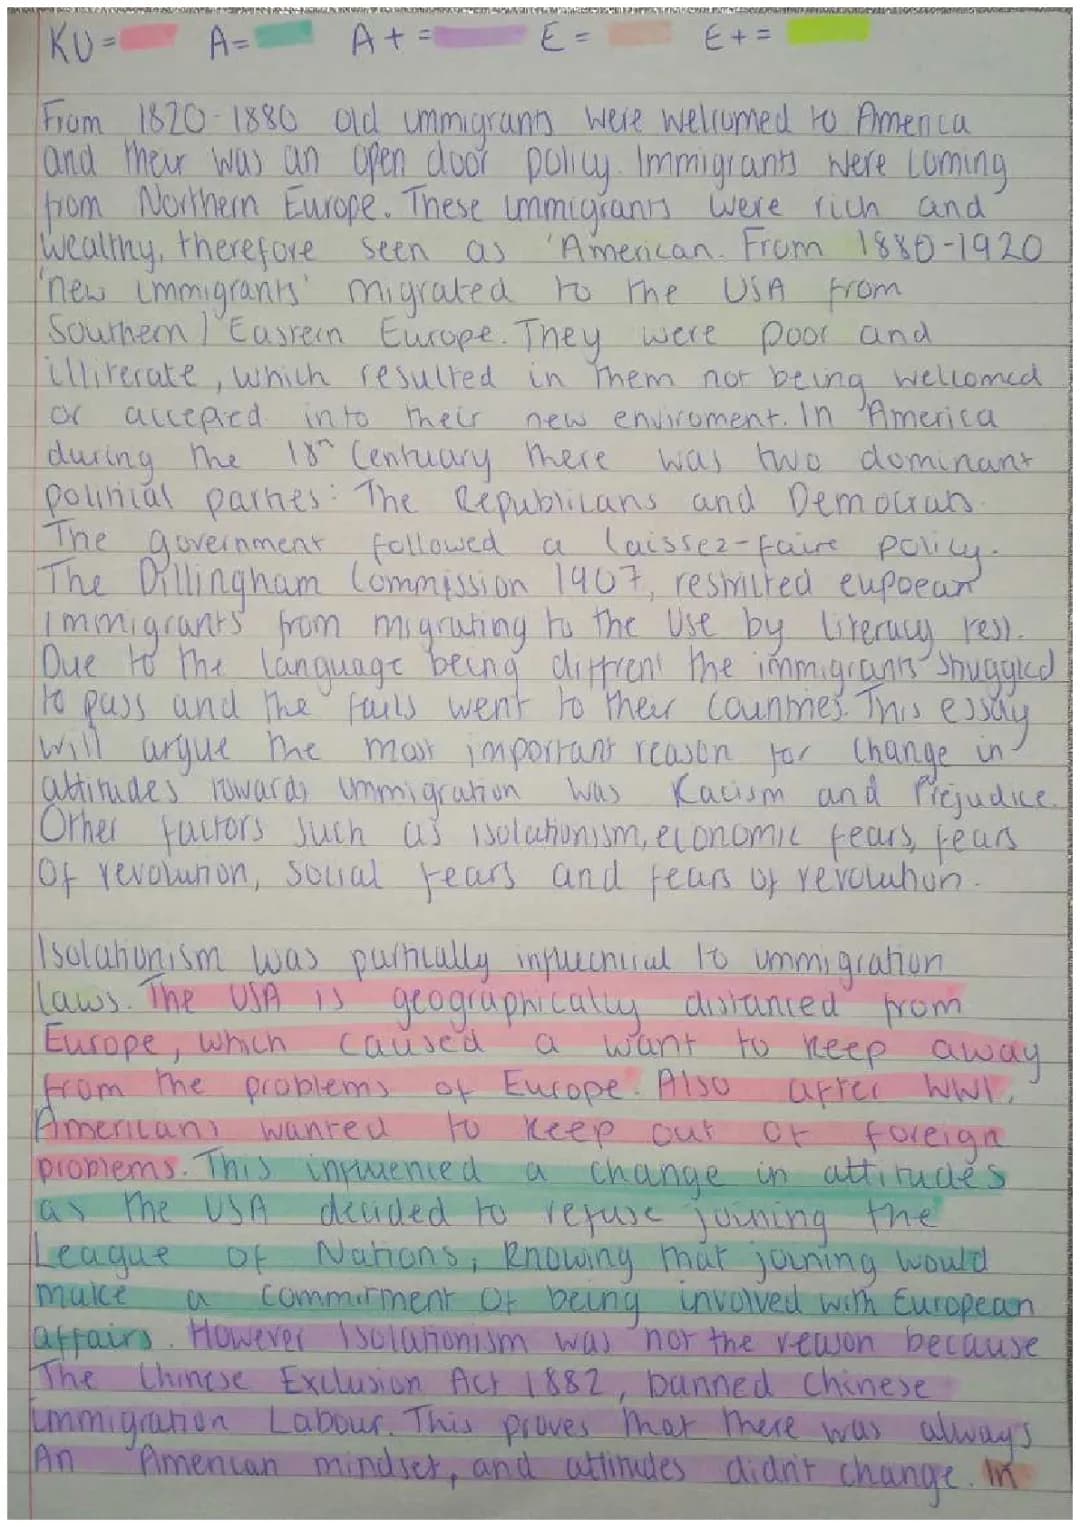 KU= A= A+= E= E+=
From 1820-1880 old immigrants were wellcomed to America
and their was an open door policy. Immigrants were coming
from Northern Europe. These immigrants were rich and
wealthy, therefore seen as 'American. From 1880-1920
'new immigrants' migrated to the USA from
Southern / Eastern Europe. They were poor and
illiterate, which resulted in them not being wellcomed
or accepted into their new enviroment. In America
during the 18th Centuary there was two dominant
political parties: The Republicans and Democrats.
The government followed a laissez-faire policy.
The Dillingham Commission 1907, restricted eupoean
immigrants from migrating to the Use by literacy test.
Due to the language being diffrent the immigrants struggled
to pass and the fails went to their countries. This essay
will argue the most important reason for change in
attitudes towards immigration was Racism and Prejudice.
Other factors such as isolationism, economic fears, fears
of revolution, social fears and fears of revolution.
Isolationism was partically influencial to immigration
laws. The USA is geographically distanced from
Europe, which caused a want to keep away
from the problems of Europe. Also after WW1,
Americans wanted to keep out of foreign
problems. This influenced a change in attitudes
as the USA decided to refuse joining the
League of Nations, knowing that joining would
make a commitment of being involved with European
affairs. However Isolationism was not the reason because
The Chinese Exclusion Act 1882, banned Chinese
immigration Labour. This proves that there was always
An American mindset, and attitudes didn't change. In